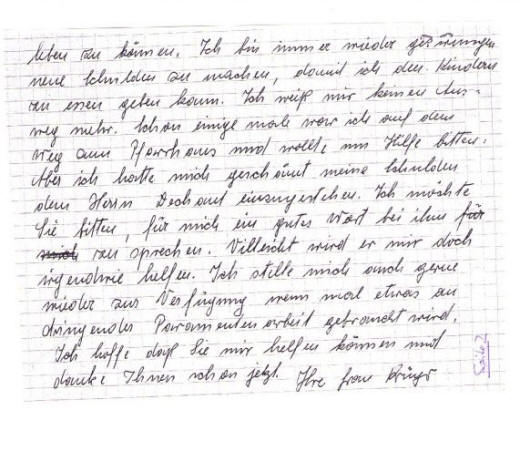 leben zu können. Ich bin immer wieder gezwungen
neue Schulden zu machen, damit ich den Kindern
zu essen geben kann. Ich weiß mir keinen Aus-
weg mehr. Schon einige male war ich auf dem
weg zum Pfarrhaus und wollte um Hilfe bitten.
Aber ich hatte mich geschämt meine Schulden
dem Herrn Dechant einzugestehen. Ich möchte
Sie bitten, für mich ein gutes Wort bei ihm für
mich zu sprechen. Villeicht wird er mir doch
irgendwie helfen. Ich stelle mich auch gerne
wieder zur Verfügung wenn mal etwas an
dringender Paramentenarbeit gebraucht wird.
Ich hoffe daß Sie mir helfen können und
danke Ihnen schon jetzt. Ihre frau Krüger
Seite 2